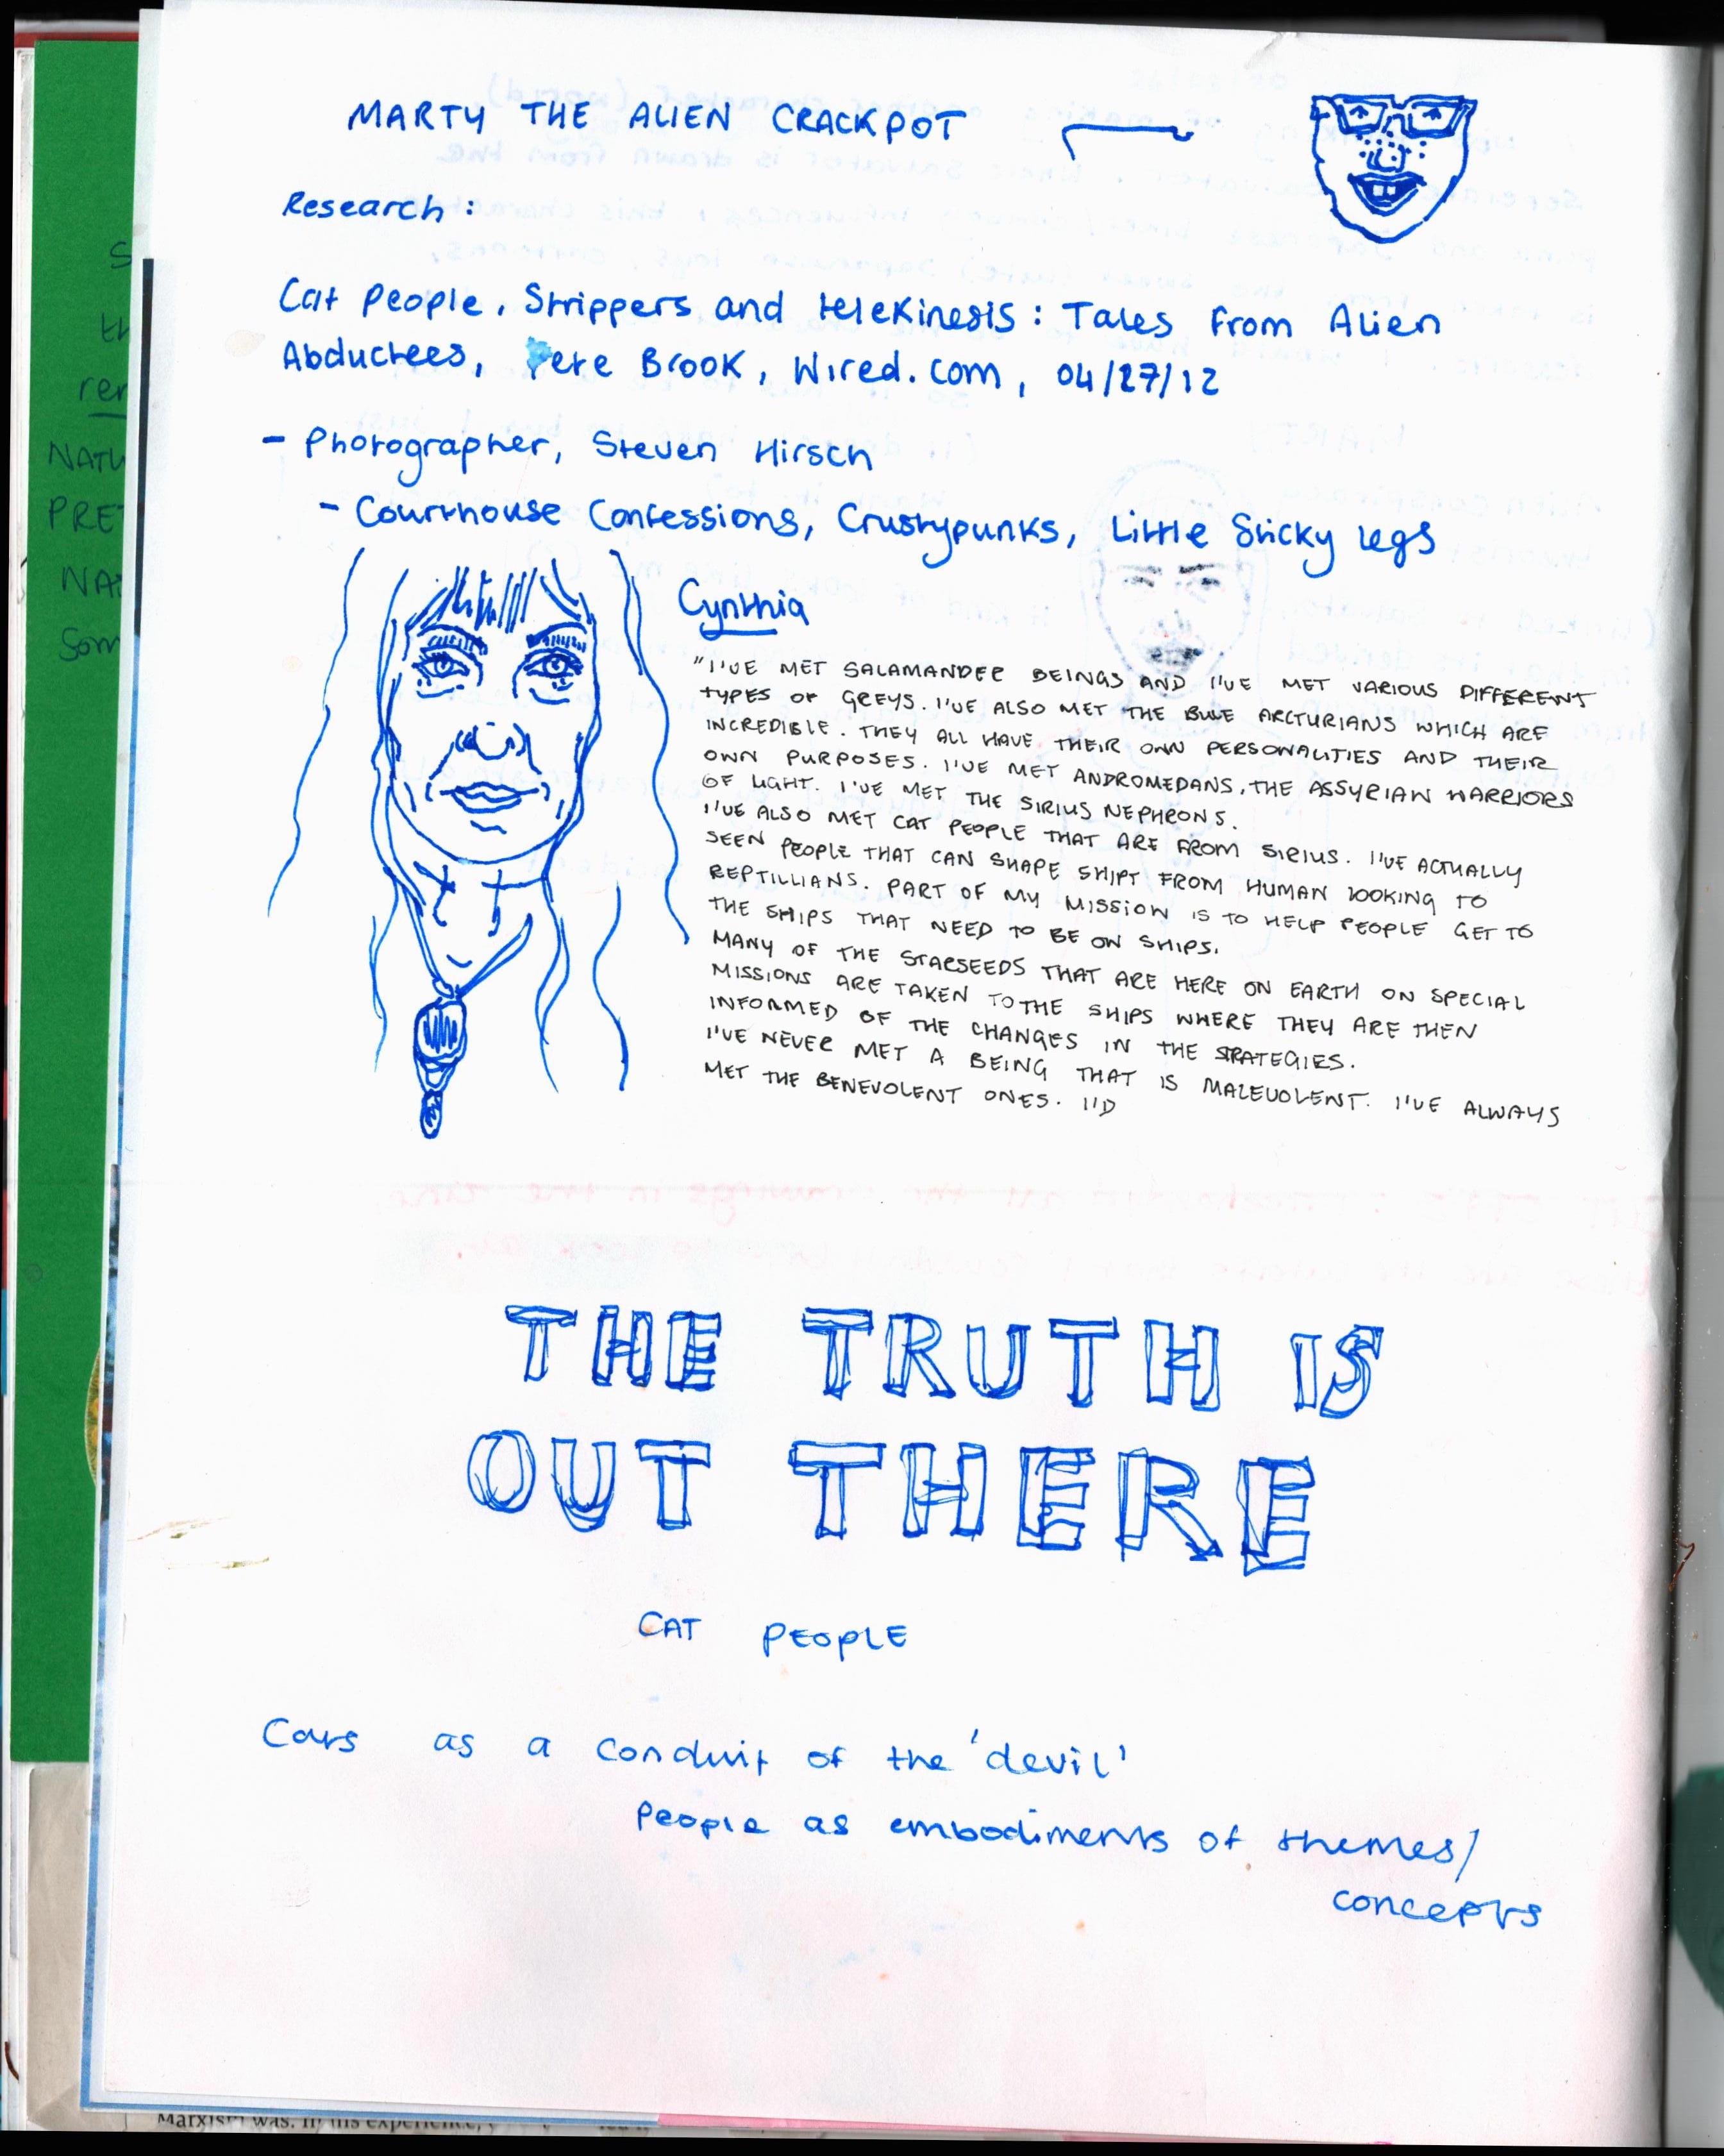 MARTY THE ALIEN CRACKPOT
Research:
Cat People, Strippers and telekinesis: Tales From Alien
Abductees, Pete Brook, Wired.com, 04/27/12
- Photographer, Steven Hirsch
- Courthouse Confessions, Crustypunks, Little Sticky Legs
Cynthia
"I'VE MET SALAMANDER BEINGS AND I'VE MET VARIOUS DIFFERENT
TYPES OF GREYS. I'VE ALSO MET THE BLUE ARCTURIANS WHICH ARE
INCREDIBLE. THEY ALL HAVE THEIR OWN PERSONALITIES AND THEIR
OWN PURPOSES. I'VE MET ANDROMEDANS, THE ASSYRIAN WARRIORS
OF LIGHT. I'VE MET THE SIRIUS NEPHRONS.
I'VE ALSO MET CAT PEOPLE THAT ARE FROM SIRIUS. I'VE ACTUALLY
SEEN PEOPLE THAT CAN SHAPE SHIFT FROM HUMAN LOOKING TO
REPTILLIANS. PART OF MY MISSION IS TO HELP PEOPLE GET TO
THE SHIPS THAT NEED TO BE ON SHIPS.
MANY OF THE STARSEEDS THAT ARE HERE ON EARTH ON SPECIAL
MISSIONS ARE TAKEN TO THE SHIPS WHERE THEY ARE THEN
INFORMED OF THE CHANGES IN THE STRATEGIES.
I'VE NEVER MET A BEING THAT IS MALEVOLENT. I'VE ALWAYS
MET THE BENEVOLENT ONES. I'D
THE TRUTH IS
OUT THERE
CAT PEOPLE
Cats as a conduit of the 'devil'
People as embodiments of themes/
concepts